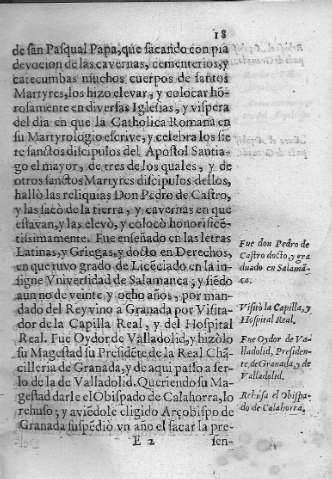 18
de san Pasqual Papa, que sacando con pia
devocion de las cavernas, cementerios, y
catecumbas muchos cuerpos de santos
Martyres, los hizo elevar, y colocar hõ-
rosamente en diversas Iglesias, y vispera
del dia en que la Catholica Romana en
su Martyrologio escrive, y celebra los sie
te sanctos discipulos del Apostol Santia-
go el mayor, de tres de los quales, y de
otros sanctos Martyres discipulos dellos,
hallò las reliquias Don Pedro de Castro,
y las sacò de la tierra, y cavernas en que
estavan, y las elevò, y colocò honorificẽ-
tissimamente. Fue enseñado en las letras
Latinas, y Griegas, y docto en Derechos,
en que tuvo grado de Licẽciado en la in-
signe Vniversidad de Salamanca, y siẽdo
aun no de veinte, y ocho años, por man-
dado del Rey vino a Granada por Visita-
dor de la Capilla Real, y del Hospital
Real. Fue Oydor de Valladolid, y hizòlo
su Magestad su Presidẽte de la Real Chã-
cilleria de Granada, y de aqui passò a ser-
lo de la de Valladolid. Queriendo su Ma-
gestad darle el Obispado de Calahorra, lo
rehuso; y aviẽdole eligido Arçobispo de
Granada suspẽdiò vn año el sacar la pre-
E 2
sen-
Fue don Pedro de
Castro docto, y gra
duado en Salamã-
ca.
Visitò la Capilla, y
Hospital Real.
Fue Oydor de Va-
lladolid, Presiden-
te de Granada, y de
Valladolid.
Rehusa el Obispa-
do de Calahorra,